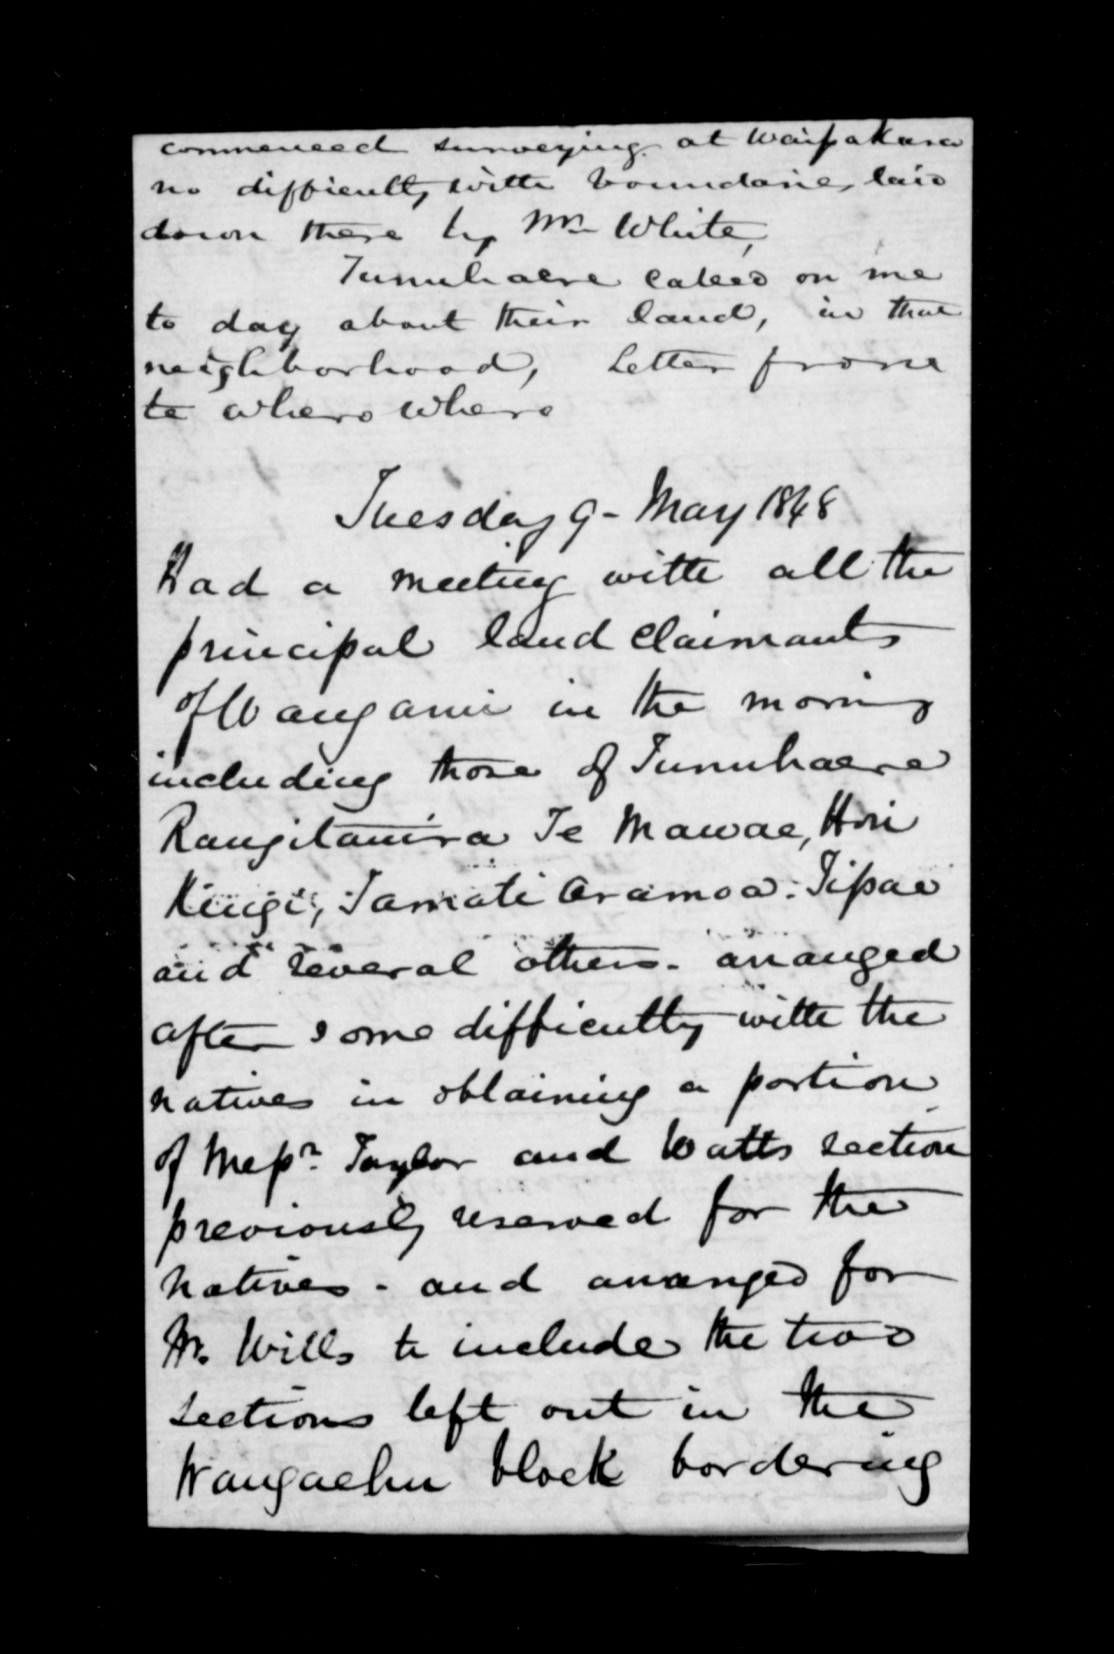 commenced surveying at Waipakura
no difficulty with boundaries laid
down there by Mr White,
Tunuhaere called on me
to day about their land, in that
neighborhood, Letter from
te whero whero
Tuesday 9 - May 1848
Had a meeting with all the
principal land claimants
of Wanganui in the morning
including those of Tunuhaere
Rangitauira Te Mawae, Hori
Kingi, Tamati Aramoa. Tipae
and several others. arranged
after some difficulty with the
natives in obtaining a portion
of Messrs Taylor and Watts section
previously reserved for the
natives - and arranged for
Mr. Wills to include the two
sections left out in the
Wangaehu block bordering